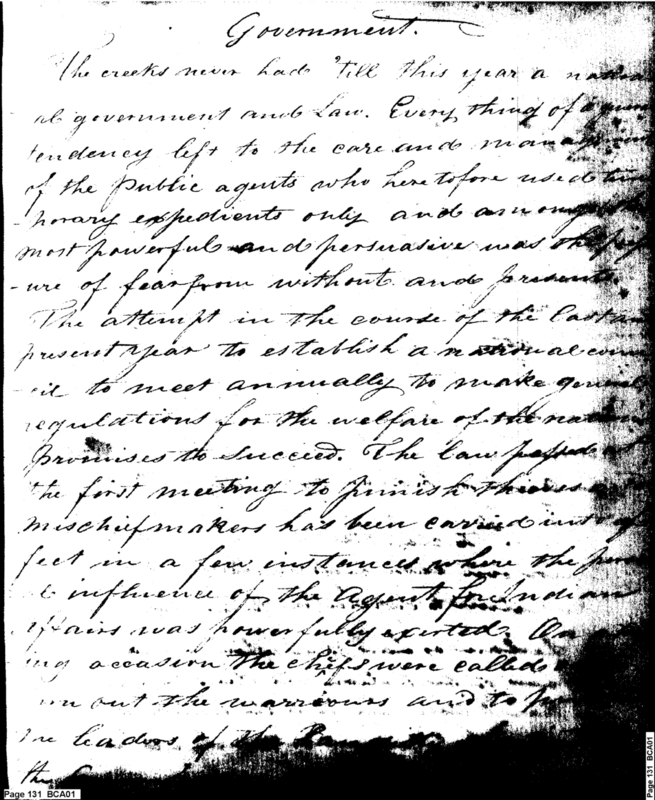 Government.
The creeks never had 'till this year a nation
al government and Law. Every thing of a
tendency left to the care and
of the Public agents who heretofore used tem
-porary expedients only and among the
most powerful and persuasive was the
-ure of fear from without and presents.
The attempt in the course of the last and
present year to establish a national coun
-cil to meet annually to make general
regulations for the welfare of the nation
Promises to succeed. The law passed at
the first meeting to punish thieves and
mischiefmakers has been carried into ef
fect in a few instances where the
influence of the Agent for Indian
affairs was powerfully exerted. On
occasion the chiefs were called
out the warriours and to
the leaders of the
Page 131 BCA01
Page 131 BCA01